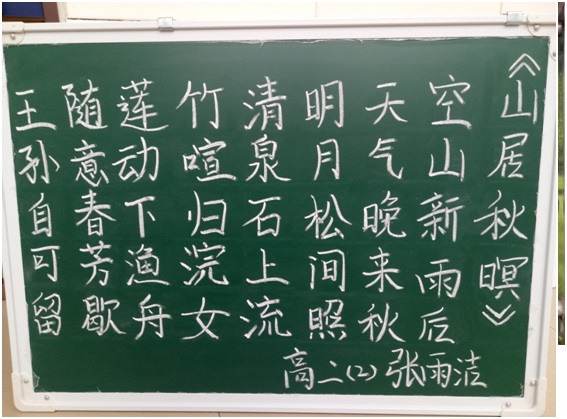 《山居秋暝》
空山新雨后
天气晚来秋
明月松间照
清泉石上流
竹喧归浣女
莲动下渔舟
随意春芳歇
王孙自可留
高二(2) 张雨洁